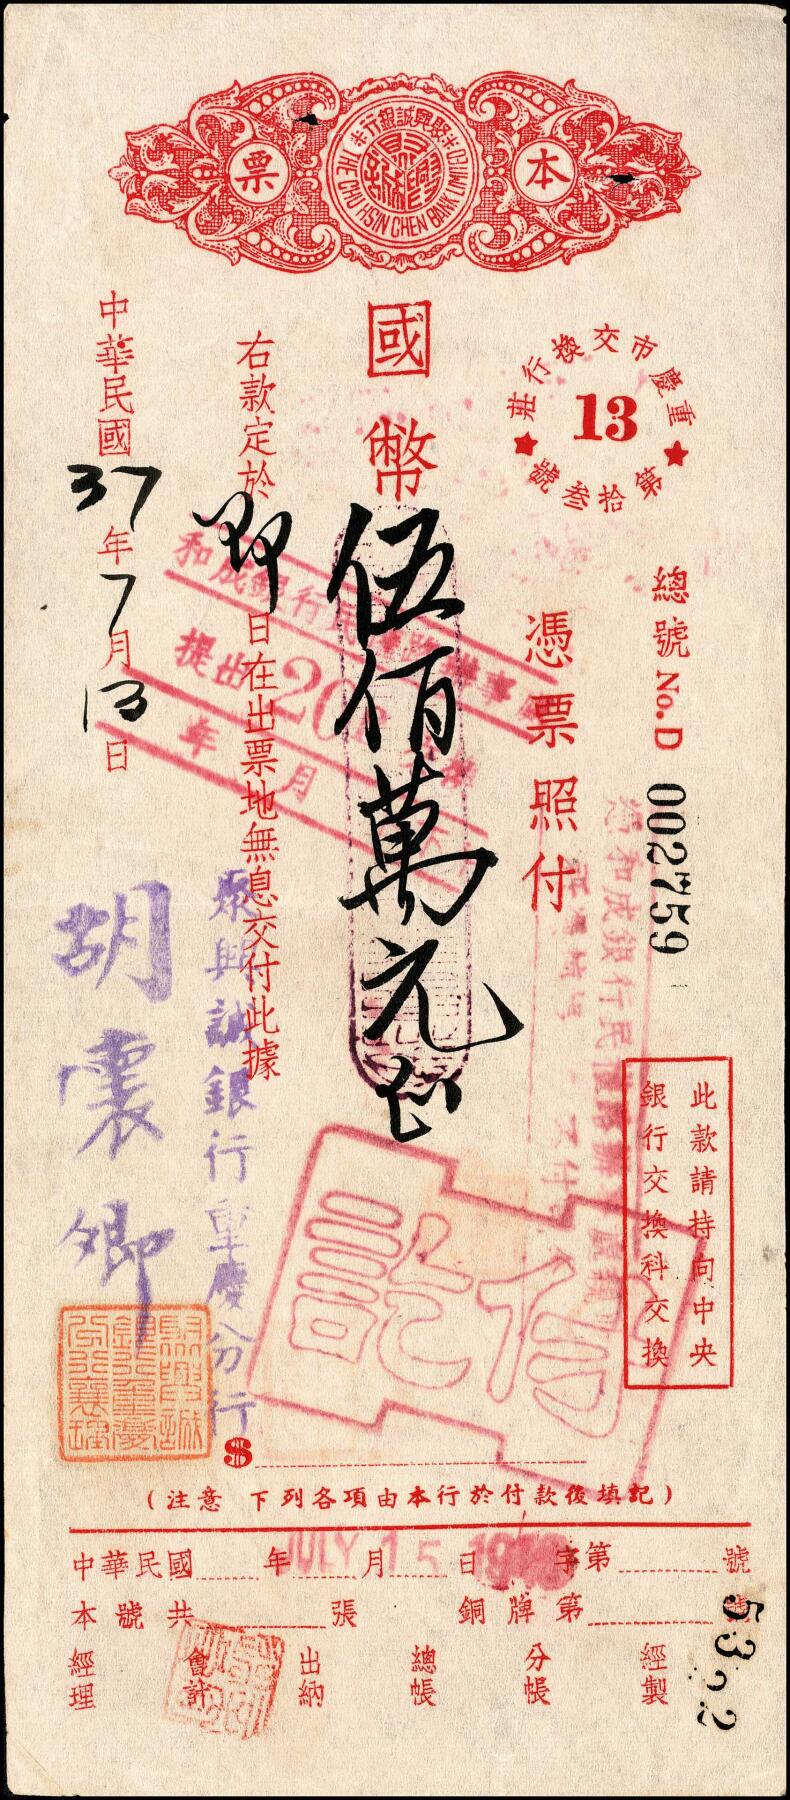 本
票
聚興誠銀行
THE CHU HSIN CHEN BANK LIMITED
重慶市交換行莊
13
第拾叁號
總號 No.D 002759
憑票照付
國幣伍佰萬元正
右款定於即日在出票地無息交付此據
中華民國37年7月13日
此款請持向中央
銀行交換科交換
和成銀行民
提出20
年 月
聚興誠銀行重慶分行
胡震卿
付訖
$
(注意 下列各項由本行於付款後填記)
中華民國 年 月 日 字第 號
JULY 15 1948
本號共 張 銅牌第 號
5322
經理 會計 出納 總帳 分帳 經製